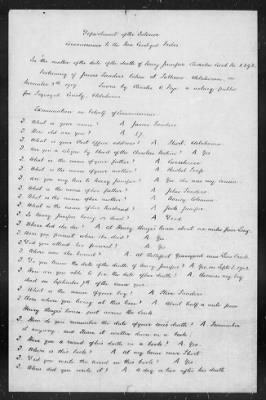 Department of the Interior
Commissioner to the Five Civilized Tribes
In the matter of the date of the death of Nancy Juniper Cherokee Card No.
Testimony of James Sanders taken at Oklahoma, on
Sworn by Charles a notary public
for Sequoyah County, Oklahoma
Examination on behalf of Commissioner
Q. What is your name? A James Sanders
Q. How old are you? A 57.
Q. What is your Post office address? A Short, Oklahoma
Q. Are you a citizen by blood of the Cherokee Nation? A Yes
Q. What is the name of your father? A
Q. What is the name of your mother? A
Q. Are you any kin to Nancy Juniper? A Yes she was my cousin
Q. What is the name of her father? A John Sanders
Q. What is the name of her mother? A Nancy
Q. What is the name of her husband? A Jack Juniper
Q. Is Nancy Juniper living or dead? A Dead
Q. Where did she die? A At Henry house about one mile from
Q. Were you present when she died? A Yes
Q. Did you attend her funeral? A Yes
Q. Where was she buried? A At graveyard near
Q. Do you know the date of the death of Nancy Juniper? A Yes on Sept
Q. How are you able to fix the date of her death? A Because my boy
died on September
Q. What is the name of your boy? A Sanders
Q. How where you living at this time? A About half a mile from
Henry house just across the creek
Q. How do you remember the date of your son's death? A I remember
it anyway and then it written down in a book
Q. Have you a record of his death in a book? A Yes.
Q. Where is this book? A At my home near Short
Q. Did you write the record in this book? A Yes
Q. When did you write it? A A day or two after his death